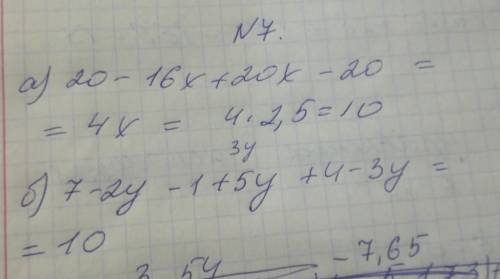 N7.
а) 20 - 16x + 20x - 20 =
= 4x = 4 · 2,5 = 10
3y
б) 7 - 2y - 1 + 5y + 4 - 3y =
= 10
3,5y
- 7,65